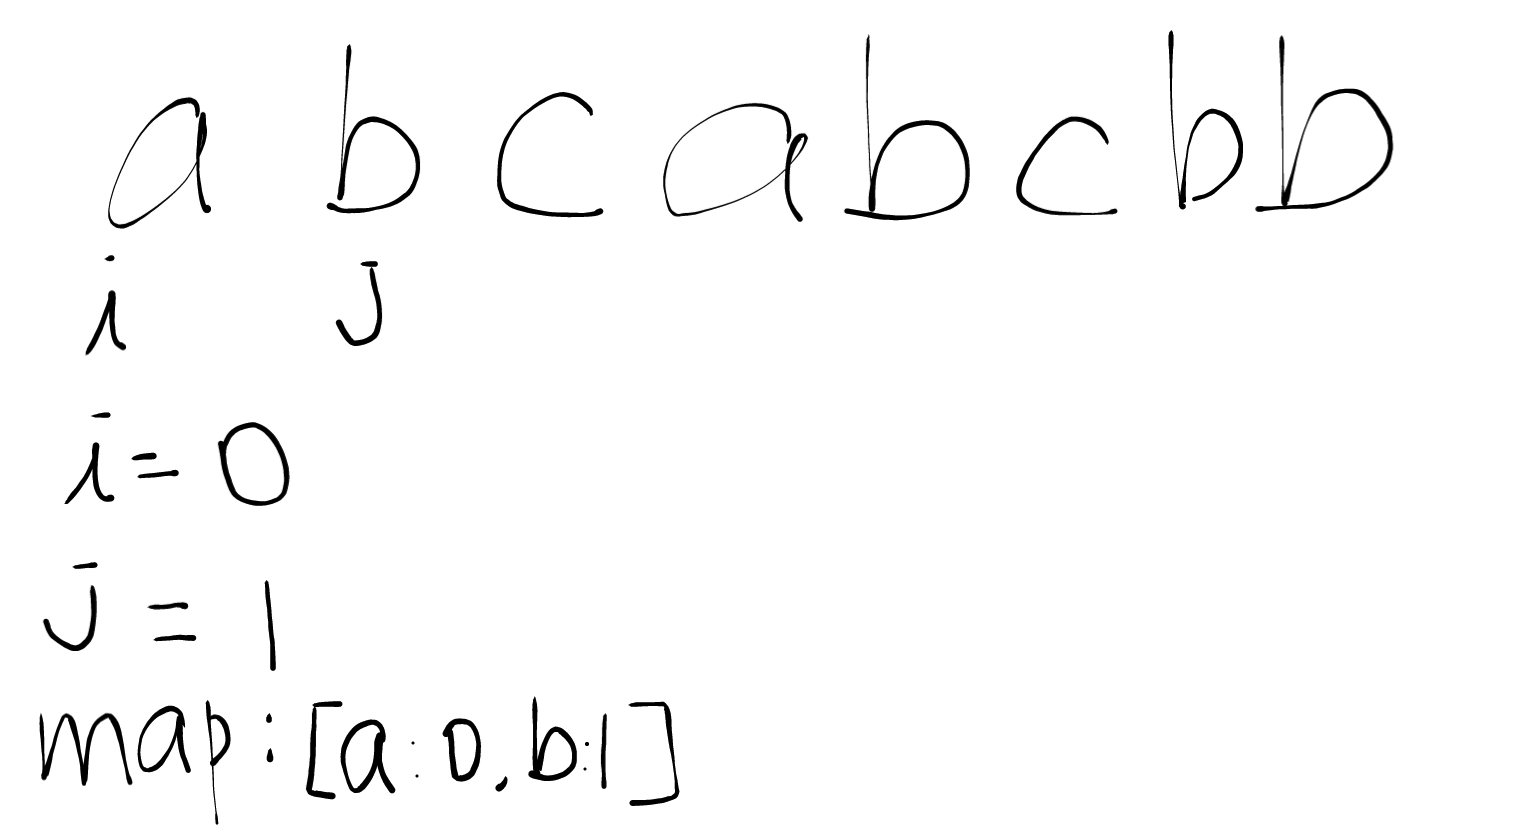 a b c a b c b b
i J
i = 0
J = 1
map : [a:0, b:1]